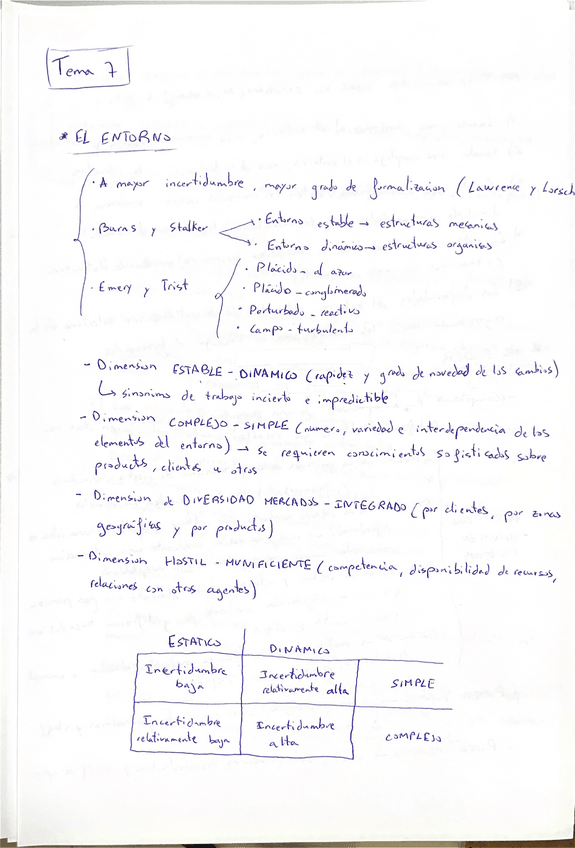 Tema 7
* EL ENTORNO
· A mayor incertidumbre, mayor grado de formalizacion (Lawrence y Lorsch
· Burns y Stalker
· Entorno estable → estructuras mecanicas
· Entorno dinámico → estructuras organicas
· Emery y Trist
· Plácido - al azar
· Plácido - conglomerado
· Perturbado - reactivo
· Campo - turbulento
- Dimension ESTABLE - DINAMICO (rapidez y grado de novedad de los cambios)
↳ sinonimo de trabajo incierto e impredictible
- Dimension COMPLEJO - SIMPLE (numero, variedad e interdependencia de los
elementos del entorno) → se requieren conocimientos sofisticados sobre
products, clientes u otros
- Dimension de DIVERSIDAD MERCADOS - INTEGRADO (por clientes, por zonas
geográficas y por productos)
- Dimension HOSTIL - MUNIFICIENTE (competencia, disponibilidad de recursos,
relaciones con otros agentes)
ESTATICO DINAMICO
Incertidumbre Incertidumbre
baja relativamente alta SIMPLE
Incertidumbre Incertidumbre
relativamente baja alta COMPLEJO